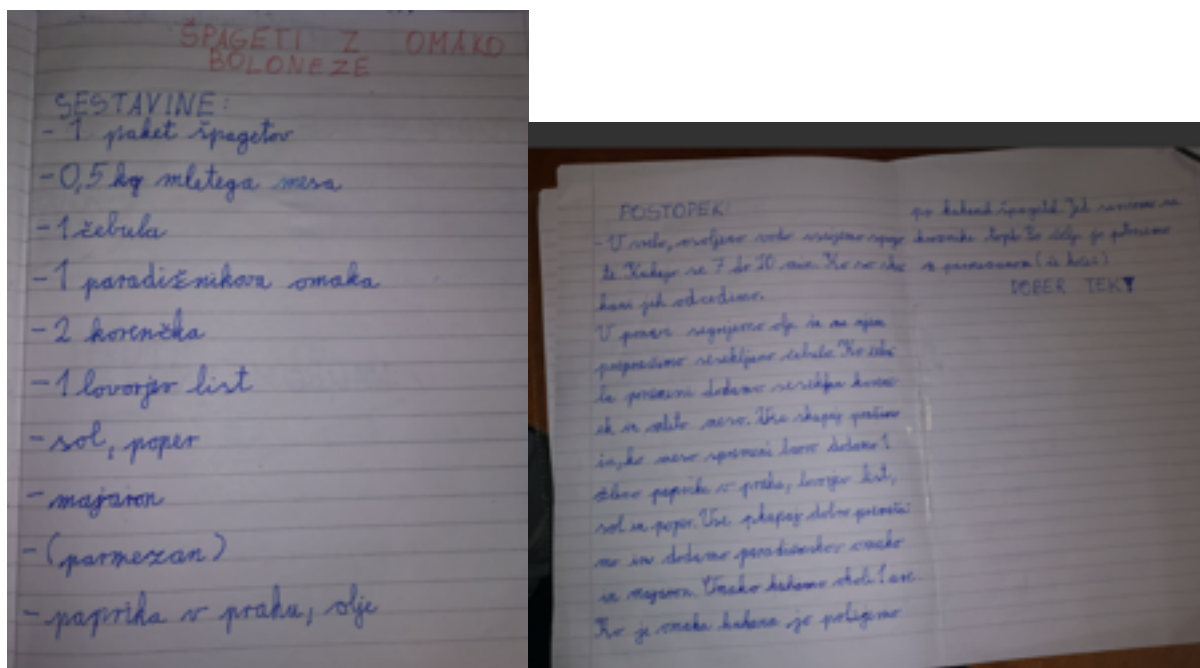 ŠPAGETI Z OMAKO
BOLONEZE
SESTAVINE:
- 1 paket špagetov
- 0,5 kg mletega mesa
- 1 žebula
- 1 paradižnikova omaka
- 2 korenčka
- 1 lovorjev list
- sol, poper
- majaron
- (parmezan)
- paprika v prahu, olje
POSTOPEK:
- V vrelo, osoljeno vodo
te. Kuhajo se 7 do 10 min. Ko so sku
hani jih odcedimo.
V ponvi segrejemo olje in na njem
prepražimo sesekljano čebulo. Ko čebu
la dodamo
ek in mleto meso. Vse skupaj pražimo
in, ko meso spremeni barvo dodamo 1
žlico paprike v prahu, lovorjev list,
sol in poper. Vse skupaj dobro premeša
mo in dodamo omako
in majaron. Omako kuhamo okoli 1 uro.
Ko je omaka kuhana jo polijemo
po kuhanih špagetih.
krožnike
s parmezanom
DOBER TEK